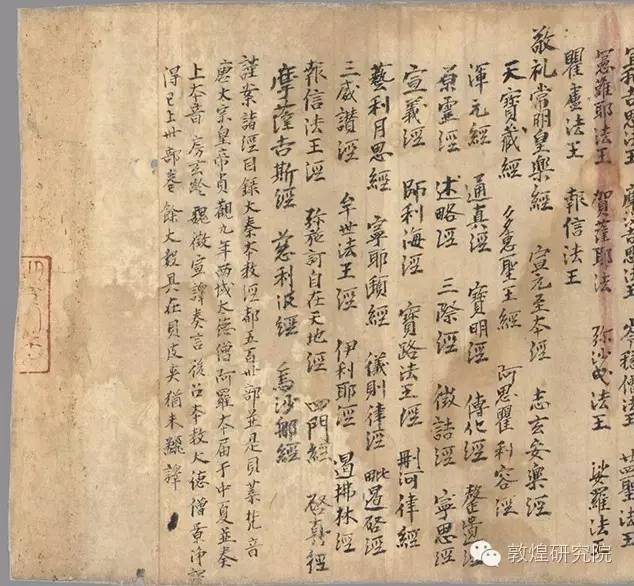 吉思法王 摩 吉思法王 岑穩僧法王 聖法王
憲難耶法王 賀薩耶法 弥沙曳法王 娑羅法
瞿盧法王 報信法王
敬礼常明皇樂經 宣元至本經 志玄安樂經
天寶藏經 多惠聖王經 阿思瞿利容經
渾元經 通真經 寶明經 傳化經 罄遺經
原靈經 述略經 三際經 徵詰經 寧思經
宣義經 師利海經 寶路法王經 刪河律經
藝利月思經 寧耶頲經 儀則律經 毗遏啓經
三威讚經 牟世法王經 伊利耶經 遏拂林經
報信法王經 弥施訶自在天地經 四門經 啓真經
摩薩吉斯經 慈利波經 烏沙那經
謹案諸經目錄大秦本教經都五百卅部並是貝葉梵音
唐太宗皇帝貞觀九年西域太德僧阿羅本屆于中夏並奏
上本音房玄齡魏徵宣譯奏言後召本教大德僧景淨譯
得已上卅部卷餘大數具在貝皮夾猶未翻譯
敦煌研究院